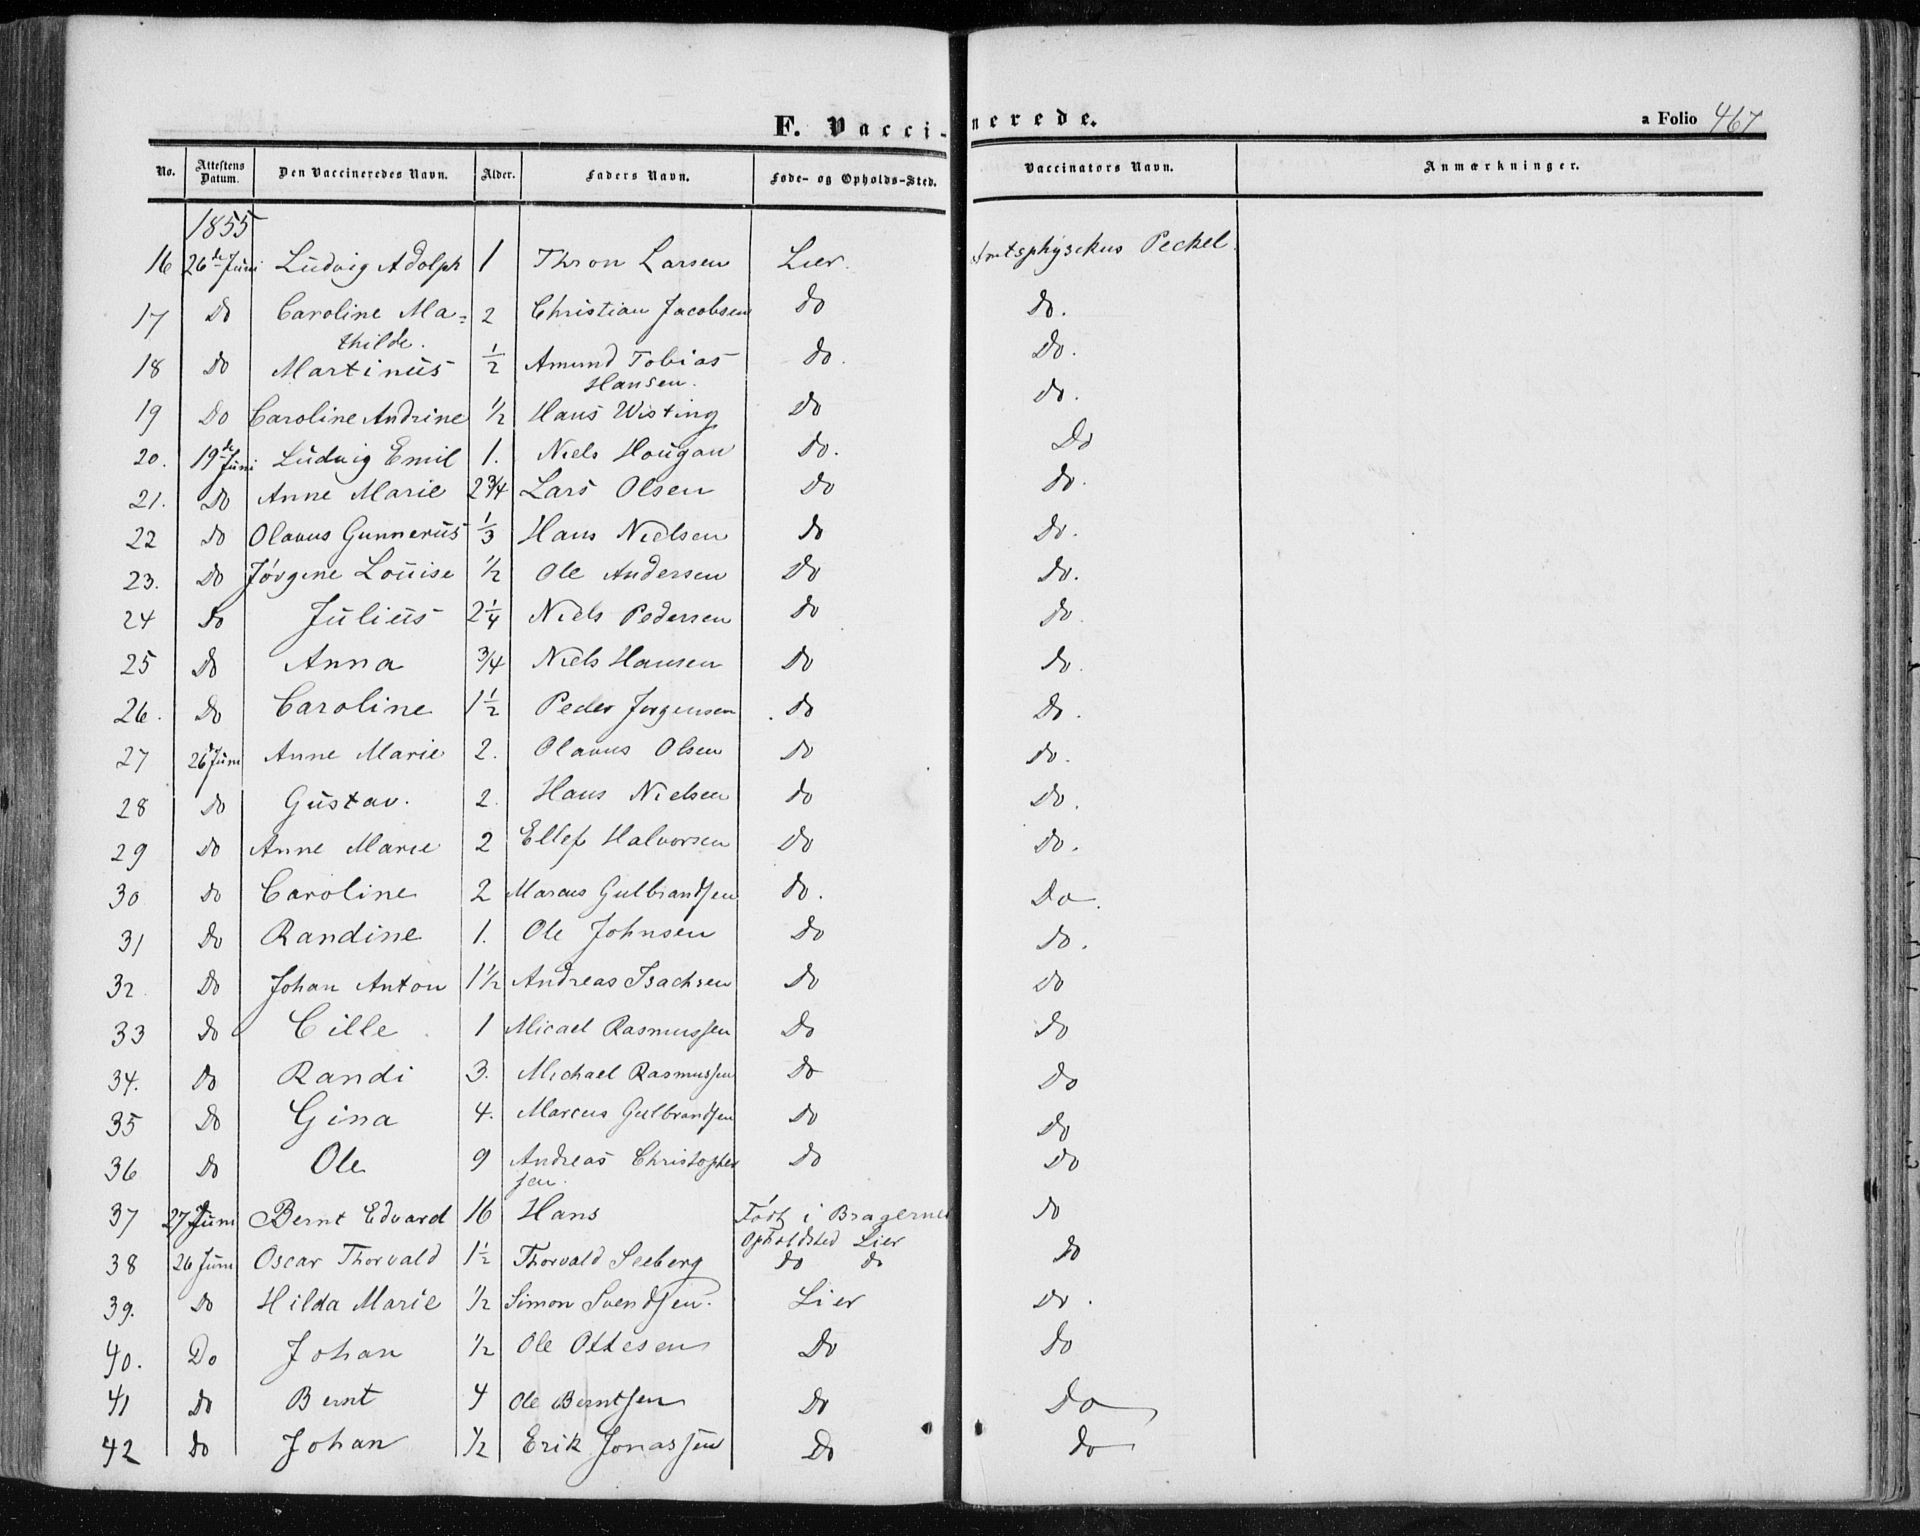 F. Vaccinerede. a Folio 467
No. Attestens Datum. Den Vaccineredes Navn. Alder. Faders Navn. Føde- og Opholds-Sted. Vaccinators Navn. Anmærkninger.
1855
16 26de Juni Ludvig Adolph 1 Thron Larsen Lier. Amtsphysikus Peckel.
17 Do Caroline Ma= 2 Christian Jacobsen Do Do.
thilde.
18 Do Martinus 1/2 Amund Tobias Do. Do.
Hansen.
19 Do Caroline Andrine 1/2 Hans Wisting Do Do.
20. 19de Juni Ludvig Emil 1. Niels Hougan Do. Do
21. Do Anne Marie 2 3/4 Lars Olsen Do Do.
22 Do Olavus Gunnerus 1/3 Hans Nielsen Do Do.
23. Do Jørgine Louise 1/2 Ole Andersen Do Do.
24 Do Julius 2 1/4 Niels Pedersen Do Do.
25 Do Anna 3/4 Niels Hansen Do Do.
26. Do Caroline 1 1/2 Peder Jørgensen Do Do.
27 26 Juni Anne Marie 2. Olavus Olsen Do Do.
28 Do Gustav. 2. Hans Nielsen Do Do.
29 Do Anne Marie 2 Ellef Halvorsen Do Do.
30 Do Caroline 2 Marcus Gulbrandsen Do. Do.
31 Do Randine 1. Ole Johnsen Do Do.
32 Do Johan Anton 1 1/2 Andreas Isachsen Do Do
33 Do Cille 1 Micael Rasmussen Do Do
34. Do Randi 3. Michael Rasmussen Do Do
35 Do Gina 4. Marcus Gulbrandsen Do Do
36 Do Ole 9 Andreas Christopher Do Do
sen.
37 27 Juni Bernt Edvard 16 Hans Født i Bragernes Do
Opholdsted Lier
38 26 Juni Oscar Thorvald 1 1/2 Thorvald Seeberg Do Do Do
39. Do Hilda Marie 1/2 Simon Svendsen. Lier Do.
40. Do Johan 1/2 Ole Ottesen Do Do
41 Do Bernt 4 Ole Berntsen Do Do
42 Do Johan 1/2 Erik Jonassen Do Do